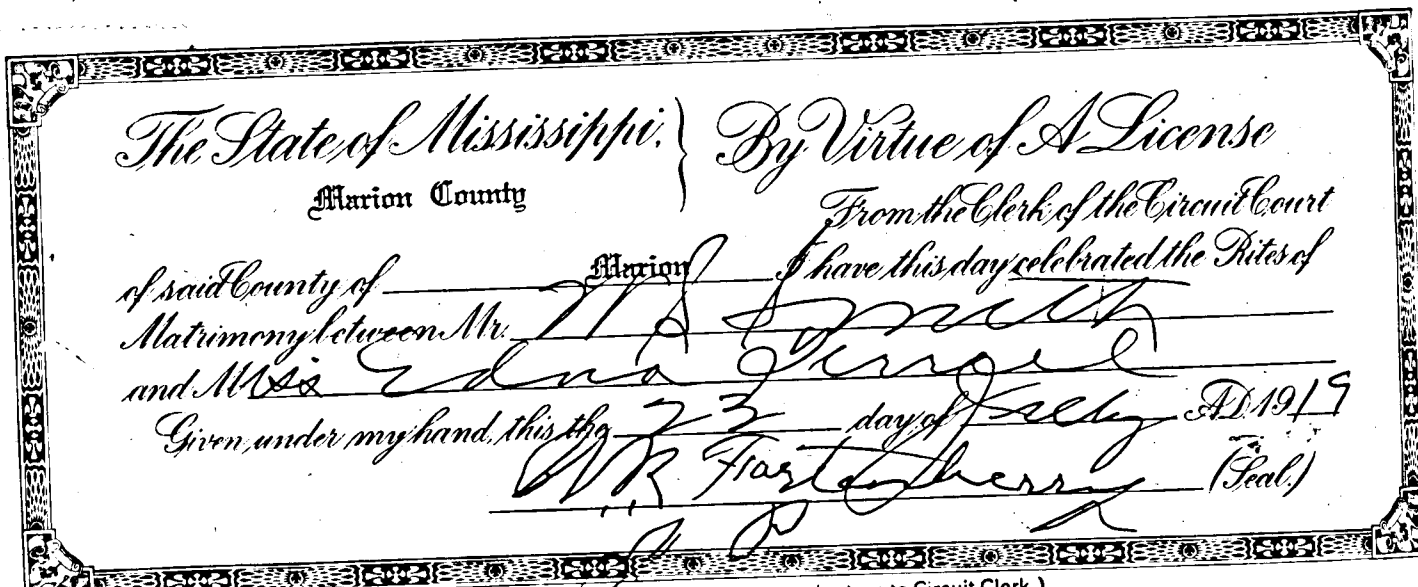 The State of Mississippi. } By Virtue of A License
Marion County
From the Clerk of the Circuit Court
of said County of Marion I have this day celebrated the Rites of
Matrimony between Mr. Smith
and Miss Edna
Given, under my hand, this the 23 day of July A.D. 1919
W R Fortenberry (Seal.)
J P
to Circuit Clerk.)